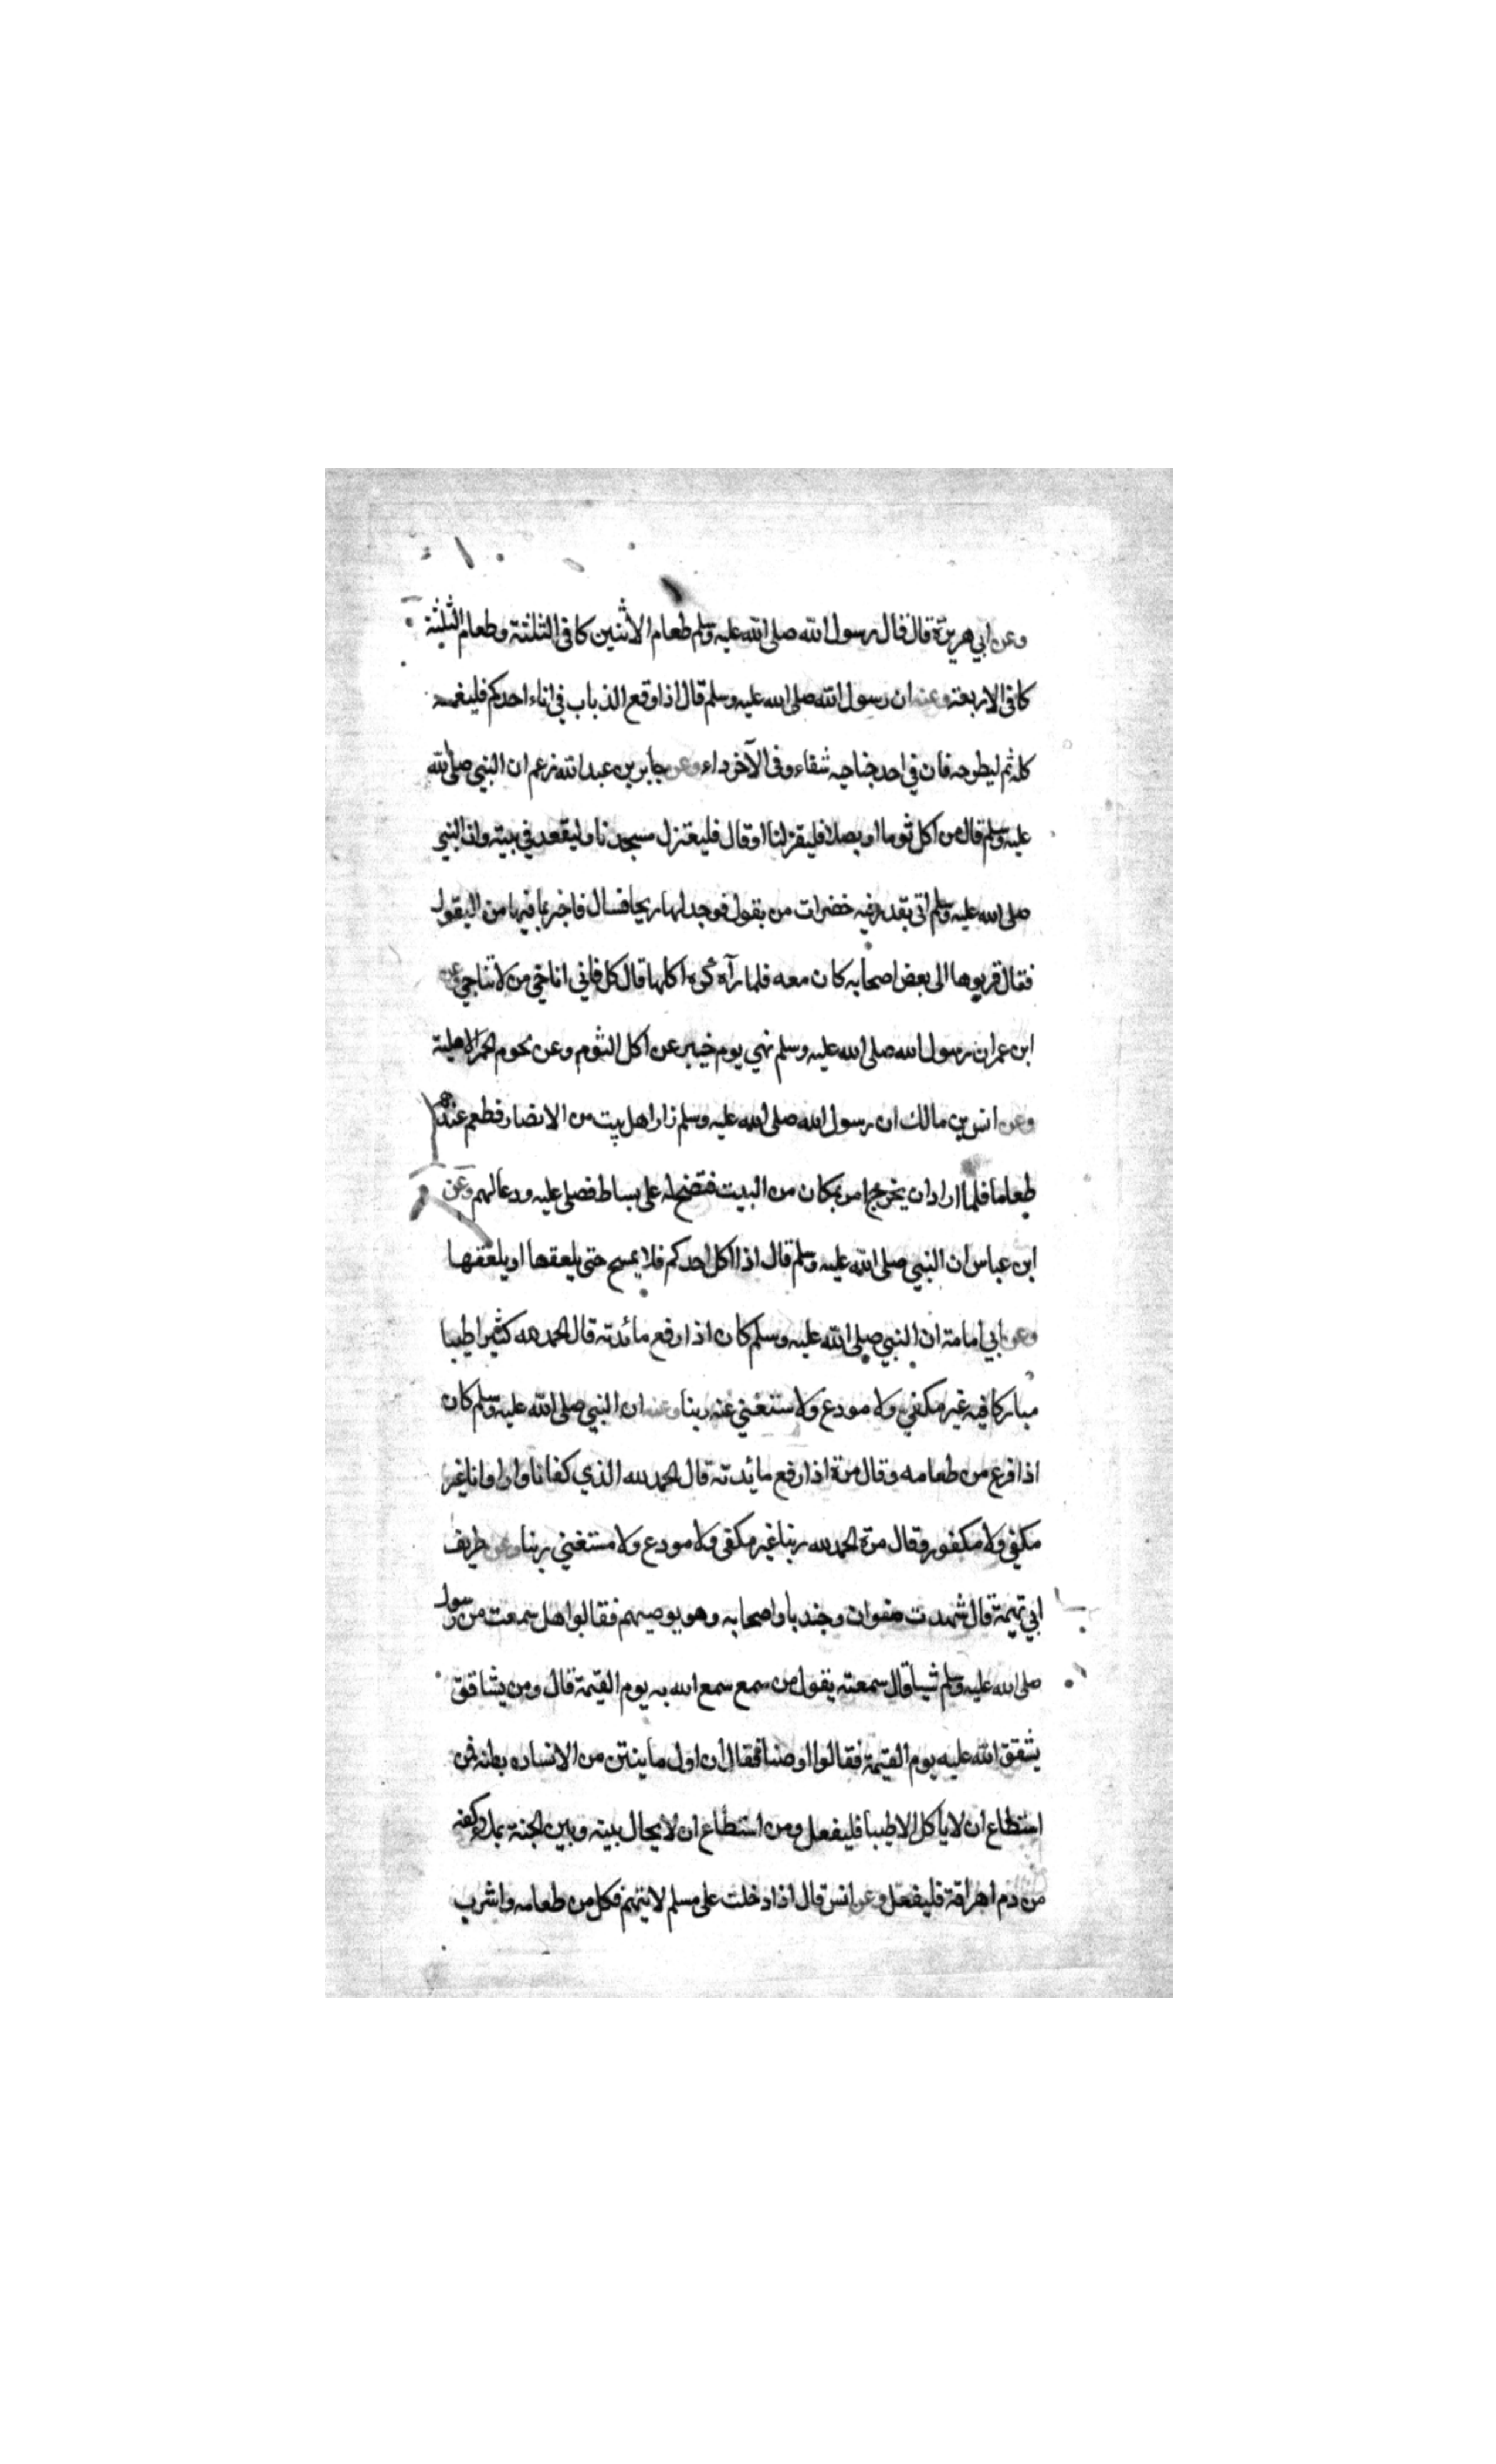 وعن ابي هريرة قال قال رسول الله صلى الله عليه وسلم طعام الاثنين كافي الثلثة وطعام الثلثة
كافي الاربعة وعنه ان رسول الله صلى الله عليه وسلم قال اذا وقع الذباب في اناء احدكم فليغمسه
كله ثم ليطرحه فان في احد جناحيه شفاء وفي الآخر داء وعن جابر بن عبد الله زعم ان النبي صلى الله
عليه وسلم قال من اكل ثوما او بصلا فليعتزلنا او قال فليعتزل مسجدنا وليقعد في بيته وان النبي
صلى الله عليه وسلم اتى بقدر فيه خضرات من بقول فوجد لها ريحا فسال فاخبر بما فيها من البقول
فقال قربوها الى بعض اصحابه كان معه فلما رآه كره اكلها قال كل فاني اناجي من لا تناجي وعن
ابن عمر ان رسول الله صلى الله عليه وسلم نهي يوم خيبر عن اكل الثوم وعن لحوم الحمر الاهلية
وعن انس بن مالك ان رسول الله صلى الله عليه وسلم زار اهل بيت من الانصار فطعم عندهم
طعاما فلما اراد ان يخرج امر بمكان من البيت فنضح له على بساط فصلى عليه ودعا لهم وعن
ابن عباس ان النبي صلى الله عليه وسلم قال اذا اكل احدكم فلا يمسح حتى يلعقها او يلعقها
وعن ابي امامة ان النبي صلى الله عليه وسلم كان اذا رفع مائدته قال الحمد لله كثيرا طيبا
مباركا فيه غير مكفي ولا مودع ولا ستغني عنه ربنا وعنه ان النبي صلى الله عليه وسلم كان
اذا فرغ من طعامه وقال مرة اذا رفع مايدته قال الحمد لله الذي كفانا واروانا غير
مكفي ولا مكفور وقال مرة الحمد لله ربنا غير مكفي ولا مودع ولا مستغني ربنا وعن طريف
ابي تميمة قال شهدت صفوان وجندبا واصحابه وهو يوصيهم فقالوا هل سمعت من رسول
صلى الله عليه وسلم شيا قال سمعته يقول من سمع سمع الله به يوم القيمة قال ومن يشاقق
يشقق الله عليه يوم القيمة فقالوا اوصنا فقال ان اول ما ينتن من الانسان بطنه فمن
استطاع ان لا ياكل الا طيبا فليفعل ومن استطاع ان لا يحال بينه وبين الجنة بملء كفه
من دم اهراقة فليفعل وعن انس قال اذا دخلت على مسلم لا يتهم فكل من طعامه واشرب